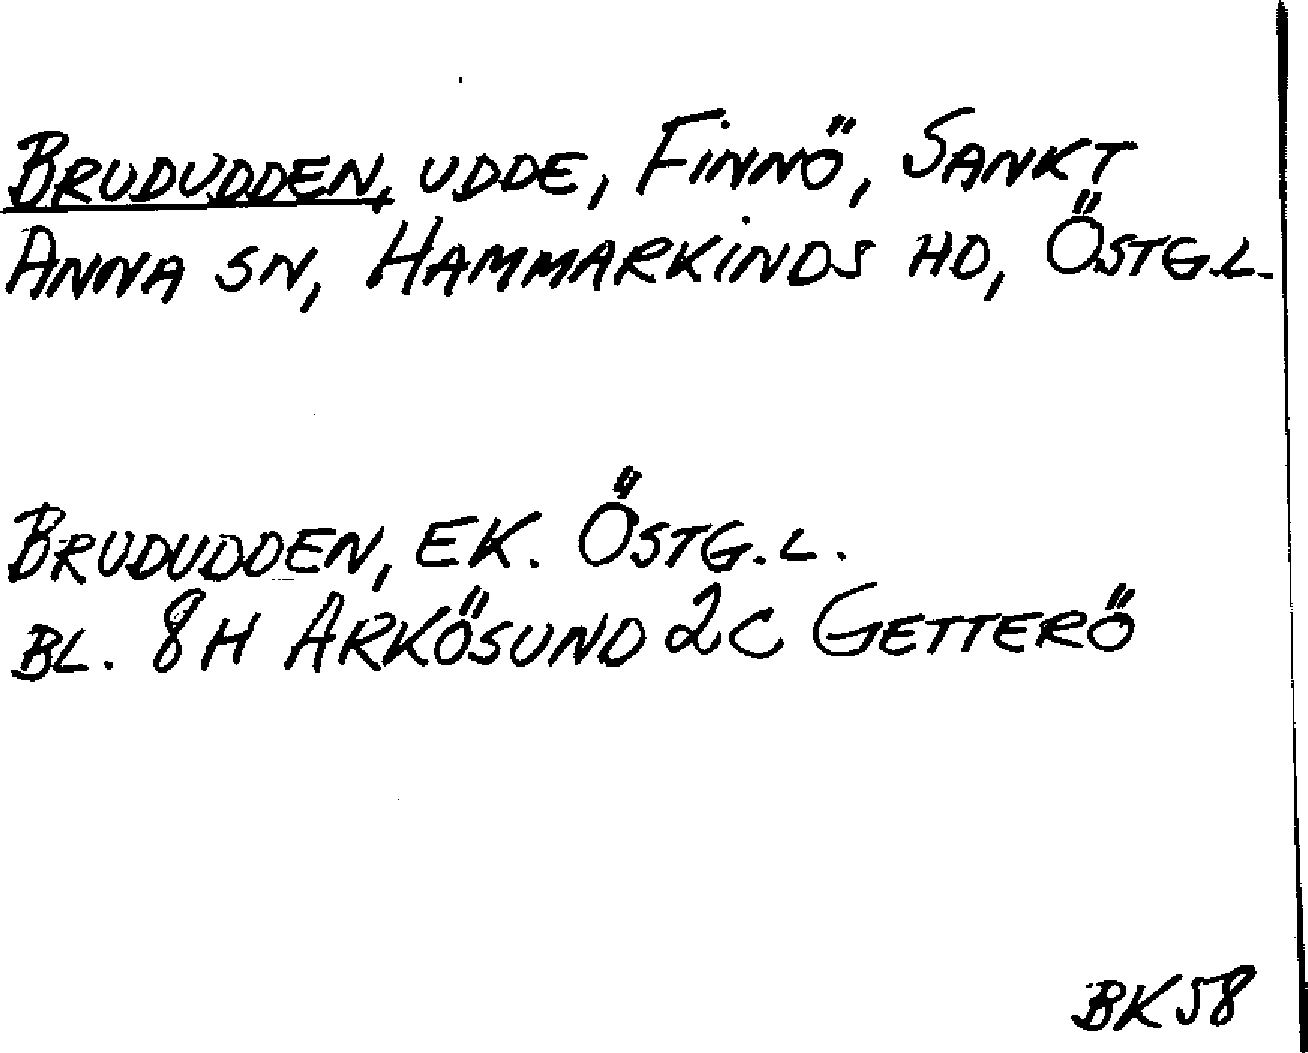 BRUDUDDEN, UDDE, FINNÖ, SANKT
ANNA SN, HAMMARKINDS HD, ÖSTG.L.
BRUDUDDEN, EK. ÖSTG.L.
BL. 8H ARKÖSUND 2C GETTERÖ
BK58